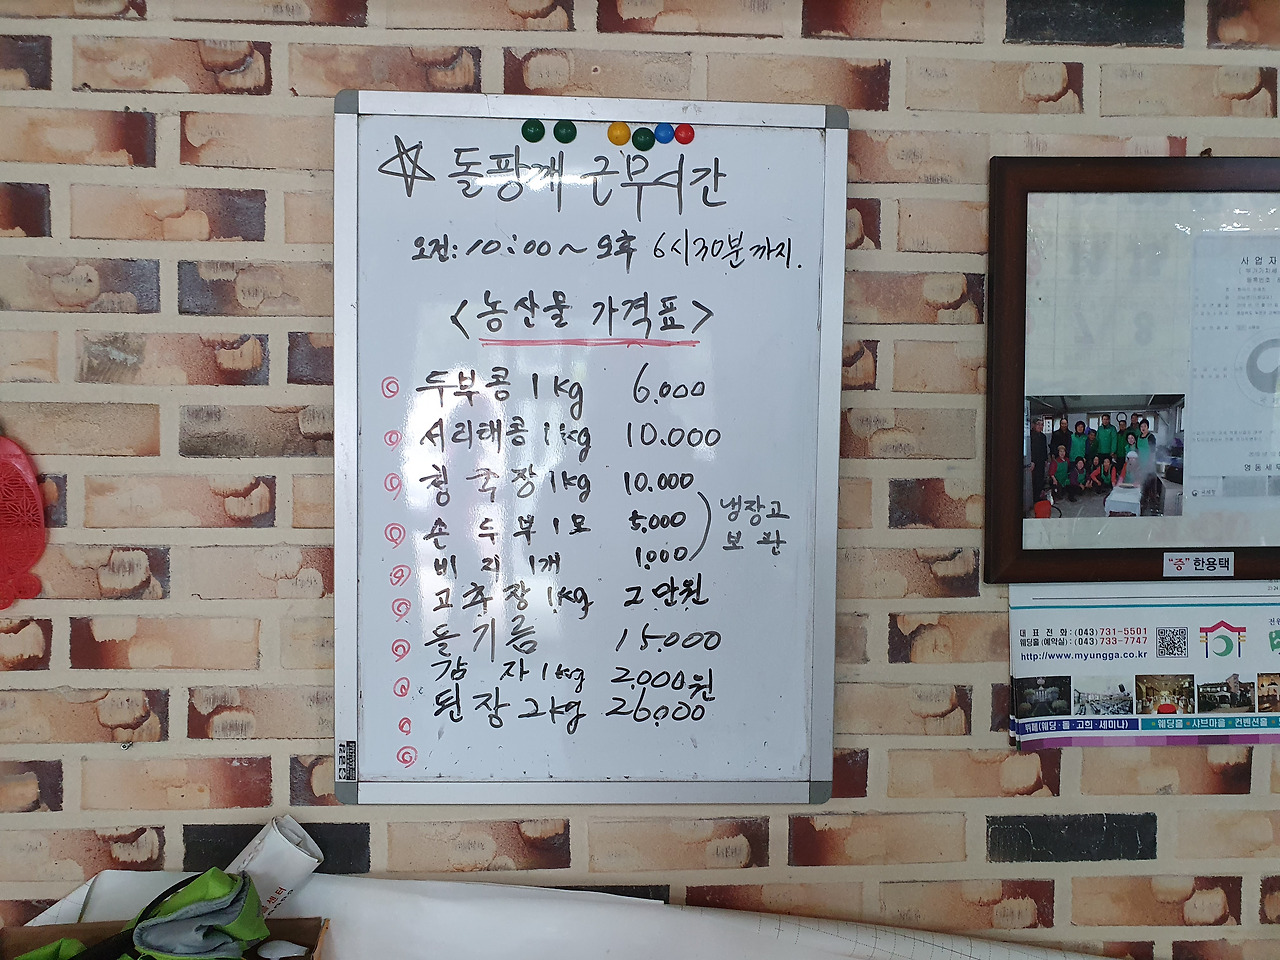 돌팡깨 근무시간
오전: 10:00 ~ 오후 6시30분까지.
<농산물 가격표>
두부콩 1kg 6.000
서리태콩 1kg 10.000
청국장 1kg 10.000
손두부 1모 5.000
비지 1개 1.000
냉장고
보관
고추장 1kg 2만원
들기름 15.000
감자 1kg 2.000원
된장 2kg 26.000
사업자
"증" 한용택
대표전화 : (043) 731-5501
웨딩홀(예약실) : (043) 733-7747
http://www.myungga.co.kr
뷔페(웨딩·돌·고희·세미나)
웨딩홀 샤브마을 컨벤션홀
센터